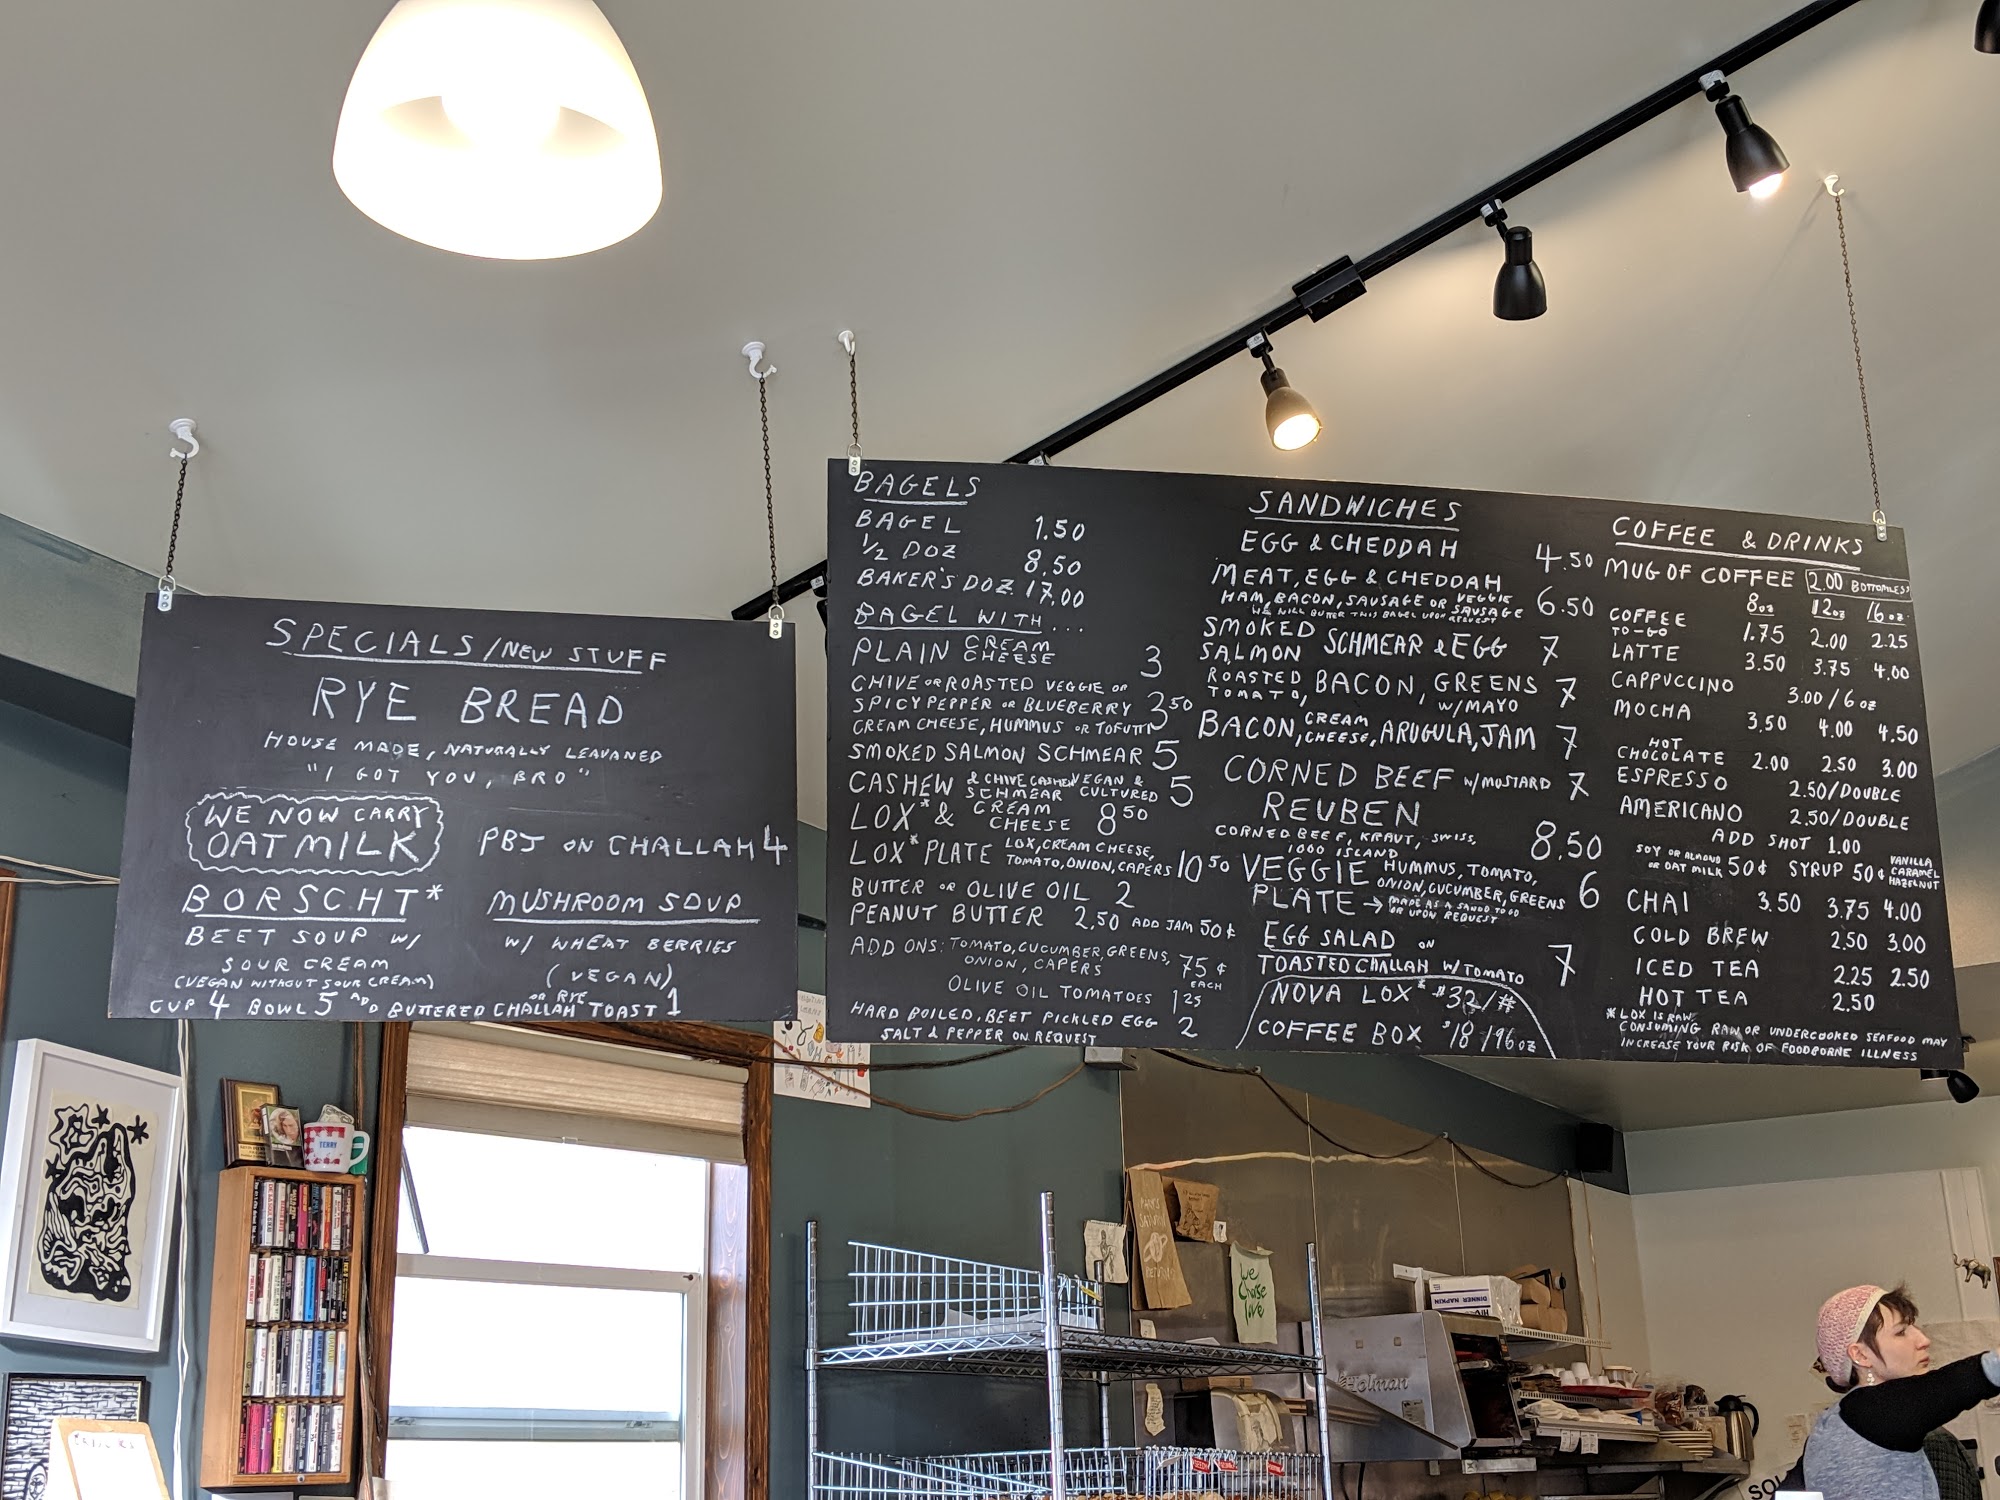 SPECIALS/NEW STUFF
RYE BREAD
HOUSE MADE, NATURALLY LEAVANED
"I GOT YOU, BRO"
WE NOW CARRY
OAT MILK
PBJ ON CHALLAH 4
BORSCHT*
BEET SOUP W/
SOUR CREAM
(VEGAN WITHOUT SOUR CREAM)
MUSHROOM SOUP
W/ WHEAT BERRIES
(VEGAN)
CUP 4 BOWL 5 AD BUTTERED CHALLAH OR RYE TOAST 1
BAGELS
BAGEL 1.50
1/2 DOZ 8.50
BAKER'S DOZ. 17.00
BAGEL WITH...
PLAIN CREAM CHEESE 3
CHIVE OR ROASTED VEGGIE OR
SPICY PEPPER OR BLUEBERRY 3.50
CREAM CHEESE, HUMMUS OR TOFUTTI
SMOKED SALMON SCHMEAR 5
CASHEW & CHIVE CASHEW SCHMEAR VEGAN & CULTURED 5
LOX* & CREAM CHEESE 8.50
LOX* PLATE LOX, CREAM CHEESE, TOMATO, ONION, CAPERS 10.50
BUTTER OR OLIVE OIL 2
PEANUT BUTTER 2.50 ADD JAM 50¢
ADD ONS: TOMATO, CUCUMBER, GREENS, ONION, CAPERS 75¢ EACH
OLIVE OIL TOMATOES 1.25
HARD BOILED, BEET PICKLED EGG 2
SALT & PEPPER ON REQUEST
SANDWICHES
EGG & CHEDDAH 4.50
MEAT, EGG & CHEDDAH 6.50
HAM, BACON, SAUSAGE OR VEGGIE SAUSAGE
WE WILL BUTTER THIS BAGEL UPON REQUEST
SMOKED SALMON SCHMEAR & EGG 7
ROASTED TOMATO, BACON, GREENS W/MAYO 7
BACON, CREAM CHEESE, ARUGULA, JAM 7
CORNED BEEF W/MUSTARD 7
REUBEN 8.50
CORNED BEEF, KRAUT, SWISS,
1000 ISLAND
VEGGIE PLATE HUMMUS, TOMATO, ONION, CUCUMBER, GREENS 6
→ MADE AS A SANDO TO GO OR UPON REQUEST
EGG SALAD ON
TOASTED CHALLAH W/TOMATO 7
NOVA LOX* $32/#
COFFEE BOX $18/96oz
COFFEE & DRINKS
MUG OF COFFEE 2.00 BOTTOMLESS
8oz 12oz 16oz
COFFEE TO-GO 1.75 2.00 2.25
LATTE 3.50 3.75 4.00
CAPPUCCINO 3.00/6oz
MOCHA 3.50 4.00 4.50
HOT CHOCOLATE 2.00 2.50 3.00
ESPRESSO 2.50/DOUBLE
AMERICANO 2.50/DOUBLE
ADD SHOT 1.00
SOY OR ALMOND OR OAT MILK 50¢ SYRUP 50¢ VANILLA CARAMEL HAZELNUT
CHAI 3.50 3.75 4.00
COLD BREW 2.50 3.00
ICED TEA 2.25 2.50
HOT TEA 2.50
*LOX IS RAW.
CONSUMING RAW OR UNDERCOOKED SEAFOOD MAY
INCREASE YOUR RISK OF FOODBORNE ILLNESS
TERRY
We
Choose
love
DINNER NAPKIN
Holman